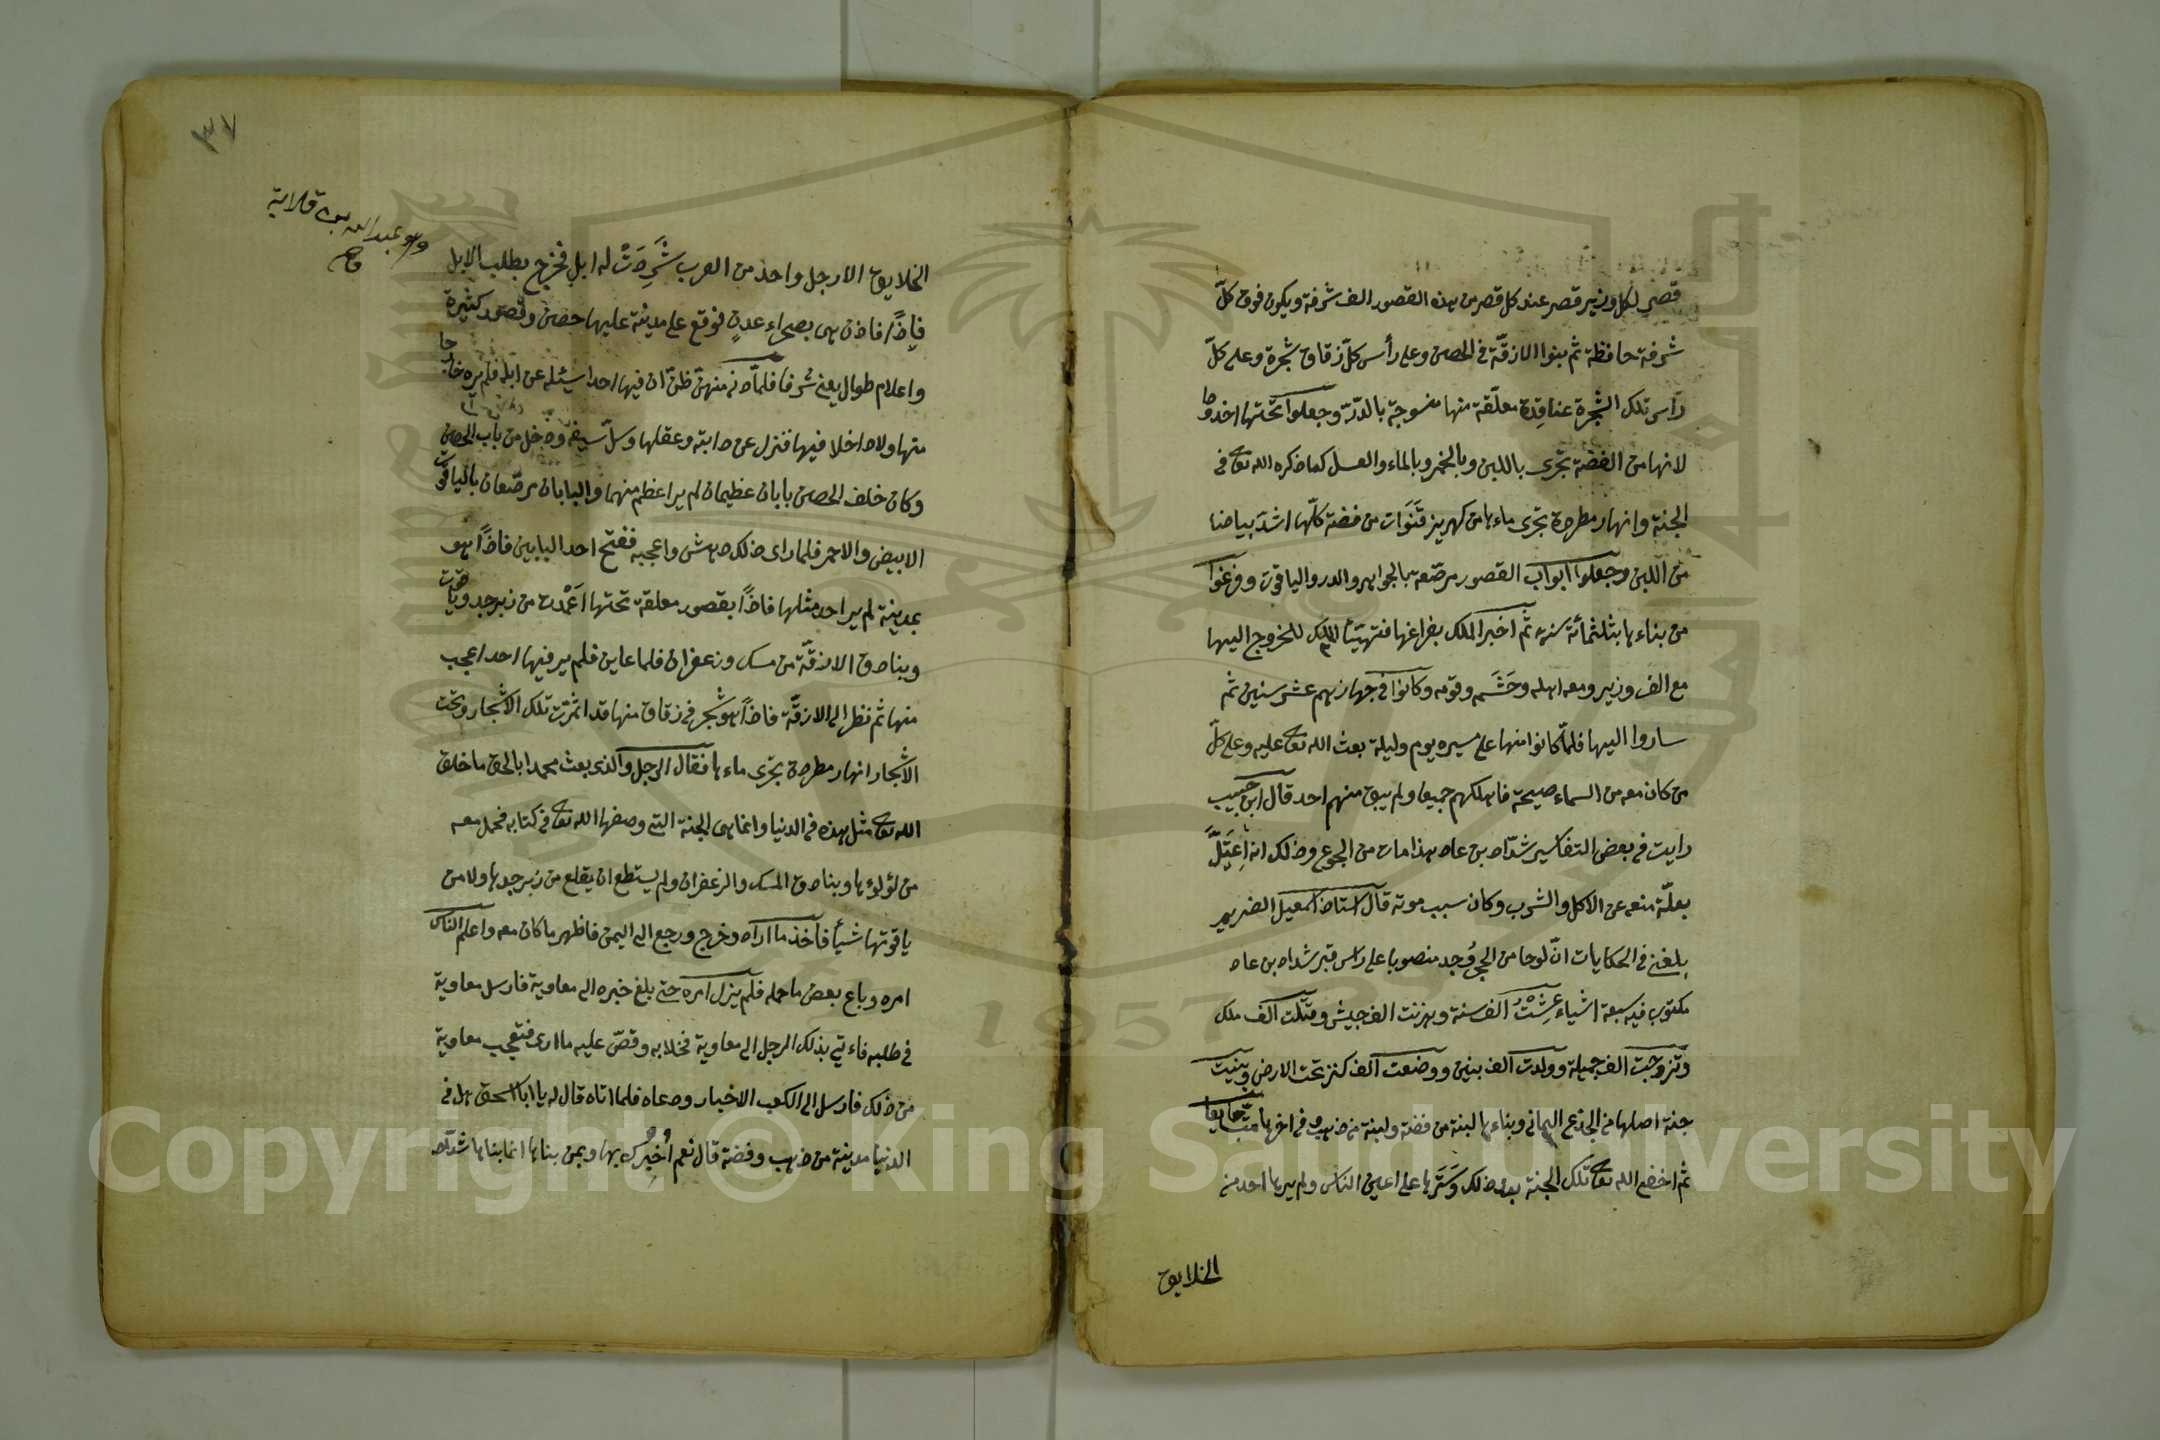 قصر لكل وزير قصر عند كل قصر من هذه القصور الف شرفة ويكون فوق كلّ
شرفة حافظة ثم بنوا الازقّة في الحصن وعلى رأس كلّ زقاق شجرة وعلى كلّ
رأس تلك الشجرة عناقدة معلّقة منها منسوجة بالدرّة وجعلوا تحتها اخدودا
لانها من الفضّة تجرى باللبن وبالخمر وبالماء والعسل كما ذكره الله تعالى في
الجنة وانهار مطردة تجرى ماءها من كهريز قَنَوَات من فضة كلّها اشدّ بياضا
من اللبن وجعلوا ابواب القصور مرصّعة بالجواهر والدر والياقوت وفرغوا
من بناءها بثلثمائة سنة ثم اخبر الملك بفراغها فتهيّئا الملك للخروج اليها
مع الف وزير ومعه اهله وحَشَمه وقومه وكانوا في جهازهم عشر سنين ثم
ساروا اليها فلمّا كانوا منها على مسيره يوم وليلة بعث الله تعالى عليه وعلى كلّ
من كان معه من السماء صيحة فاهلكهم جميعا ولم يبق منهم احد قال ابن حبيب
رايت في بعض التفاسير شدّاد بن عاد هذا مات من الجوع وذلك انه اعتلّ
بعلّة منعه عن الاكل والشرب وكان سبب موته قال استاذ اسمعيل الضرير
بلغنى في الحكايات انّ لوحا من الحجر وُجد منصوبا على راس قبر شداد بن عاد
مكتوب فيه سبعة اشياء عِشْتُ الف سنة وهزنت الف جيش وقتلت الف ملك
وتزوجت الف جميلة وولدت الف بنين ووضعت الف كنز تحت الارض وبنيت
جنة اصلها من الجذع اليمانى وبناءها لبنة من فضة ولبنة من ذهب في اخرها
ثم اخفى الله تعالى تلك الجنة بعد ذلك وسَتَرها على اعين الناس ولم يرها احد من
الخلايق
٣٧
وهو عبد الله بن قلابة
الخلايق الا رجل واحد من العرب شَرِدَتْ له ابل فخرج بطلب الابل
فاذًا فاذن هى بصحراء عدن فوقع على مدينة عليها حصن وقصور كثيرة
واعلام طوال يعنى شرفا فلمّا دنه منهنّ ظنّ ان فيها احدا سيئله عن ابله فلم يره خارجا
منها ولا داخلا فيها فنزل عن دابته وعقلها وسلّ سيفه ودخل من باب الحصن
وكان خلف الحصن بابان عظيمان لم ير اعظم منهما والبابان مرصّعان بالياقوت
الابيض والاحمر فلما راى ذلك دهش واعجبه ففتح احد البابين فاذًا هو
بمدينة لم ير احد مثلها فاذًا بقصور معلقة تحتها اَعْمدة من زبرجد وياقوت
وبنادق الازقّة من مسك وزعفران فلما عاين فلم ير فيها احدا عجب
منها ثم نظر الى الازقّة فاذًا هو شجر في زقاق منها قد اثمرت تلك الاشجار وتحت
الاشجار انهار مطردة تجرى ماءها فقال الرجل والذى بعث محمدا بالحق ما خلق
الله تعالى مثل هذه في الدنيا وانما هى الجنة التى وصفها الله تعالى في كتابه فحمل معه
من لؤلؤها وبنادق المسك والزعفران ولم يستطع ان يقلع من زبرجدها ولا من
ياقوتها شيأ فاخذ ما اراد وخرج ورجع الى اليمن فاظهر ما كان معه واعلم الناس
امره وباع بعض ما حمله فلم يزل امره حتى بلغ خبره الى معاوية فارسل معاوية
في طلبه فاءتى بذلك الرجل الى معاوية فخلا به وقصّ عليه ما ارى فتعجب معاوية
من ذلك فارسل الى الكعب الاخبار ودعاه فلما اتاه قال له يا ابا اسحق هل في
الدنيا مدينة من ذهب وفضة قال نعم اُخْبِرُك بها وبمن بناها انما بناها شدّاد